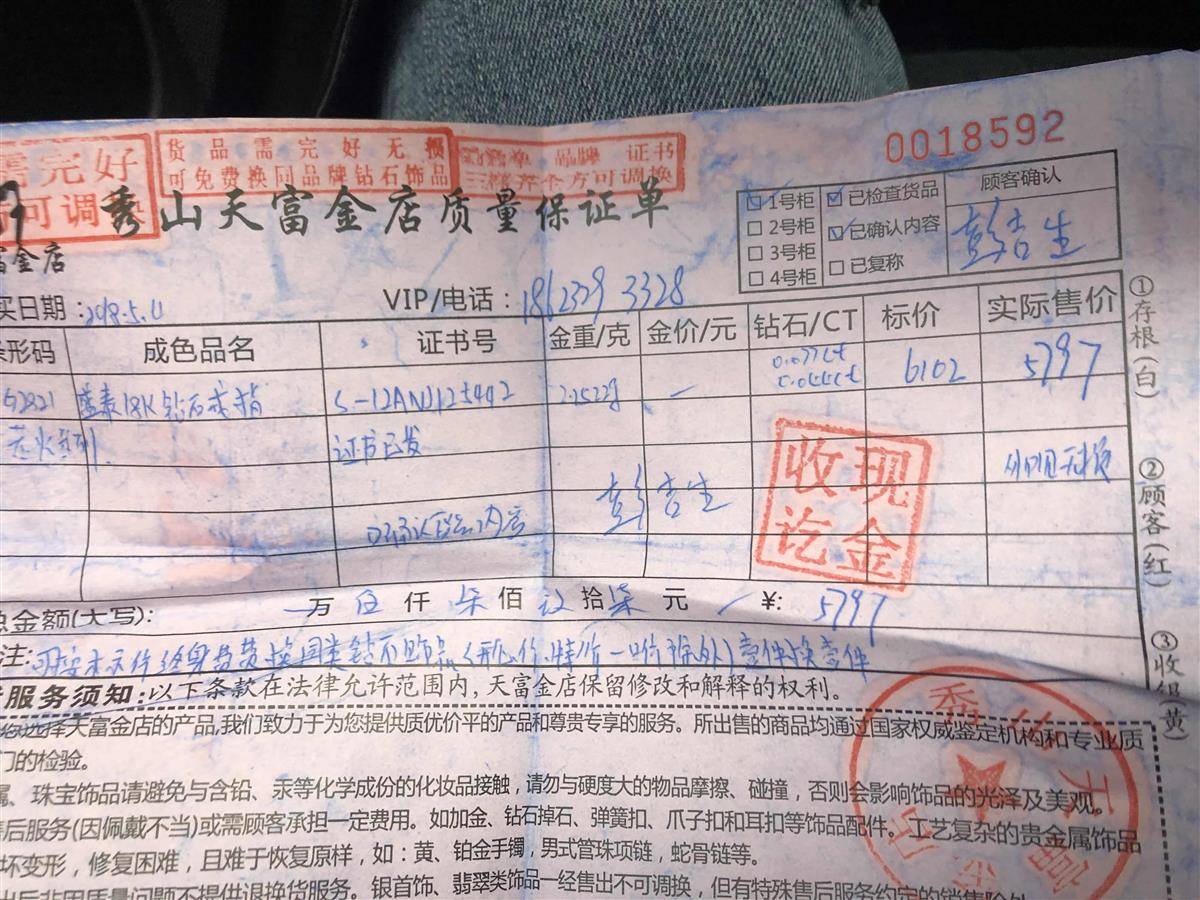 0018592
需完好
可调换
货品需完好无损
可免费换同品牌钻石饰品
品牌 证书
三样齐全方可调换
秀山天富金店质量保证单
富金店
1号柜 已检查货品 顾客确认
2号柜 已确认内容 彭吉生
3号柜
4号柜 已复称
买日期: 2018.5.11 VIP/电话: 18623293328
条形码 成色品名 证书号 金重/克 金价/元 钻石/CT 标价 实际售价
52821 18K钻石戒指 2.1522g — 0.077ct 6102 5797
证书已发 外观无损
彭吉生
现金收讫
总金额(大写): 万 伍 仟 柒 佰 玖 拾 柒 元 ¥: 5797
注: 终身免费换同类钻石饰品 特价一口价除外)壹件换壹件
服务须知:以下条款在法律允许范围内,天富金店保留修改和解释的权利。
您选择天富金店的产品,我们致力于为您提供质优价平的产品和尊贵专享的服务。所出售的商品均通过国家权威鉴定机构和专业质
门的检验。
属、珠宝饰品请避免与含铅、汞等化学成份的化妆品接触,请勿与硬度大的物品摩擦、碰撞,否则会影响饰品的光泽及美观。
售后服务(因佩戴不当)或需顾客承担一定费用。如加金、钻石掉石、弹簧扣、爪子扣和耳扣等饰品配件。工艺复杂的贵金属饰品
坏变形,修复困难,且难于恢复原样,如:黄、铂金手镯,男式管珠项链,蛇骨链等。
出后非因质量问题不提供退换货服务。银首饰、翡翠类饰品一经售出不可调换,但有特殊售后服务约定的销售除外
①存根(白)
②顾客(红)
③收银(黄)
秀山天富